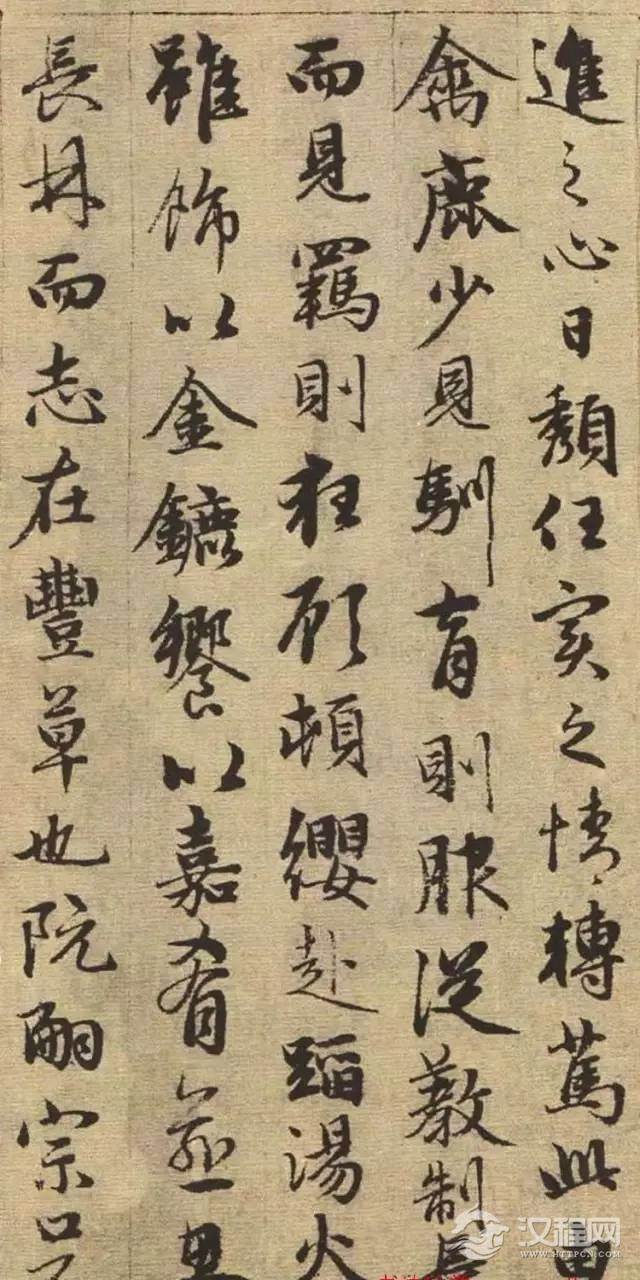 進之心日頹任實之情轉篤此由
禽鹿少見馴育則服從教制長
而見羈則狂顧頓纓赴蹈湯火
雖飾以金鑣饗以嘉肴逾思
長林而志在豐草也阮嗣宗口不
汉程网
HTTPCN.COM